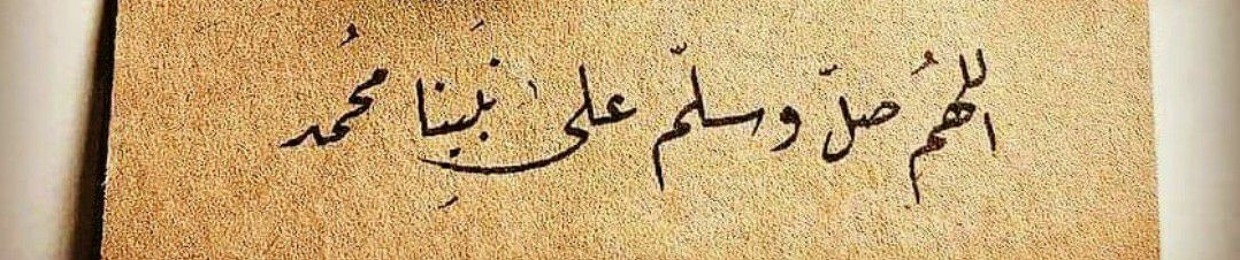 اللهُم صلّ وسلّم على نَبِينا محُمد